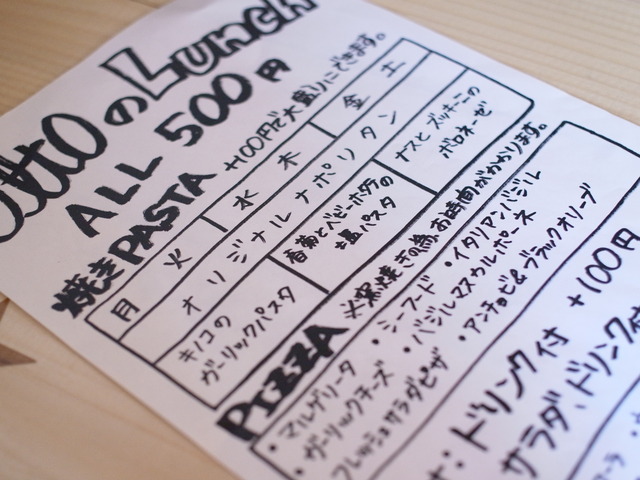 のLunch
ALL 500円
焼きPASTA +100円で大盛りにできます。
月 火 水 木 金 土
オリジナルナポリタン
キノコの
ガーリックパスタ
春菊とベビーホタテの
塩パスタ
ナスとズッキーニの
ボロネーゼ
PIZZA ※窯焼きの為、お時間がかかります。
・マルゲリータ ・シーフード ・イタリアンバジル
・ガーリックチーズ ・バジルマスカルポーネ
フレッシュサラダピザ ・アンチョビ&ブラックオリーブ
:ドリンク付 +100円
サラダ、ドリンク付